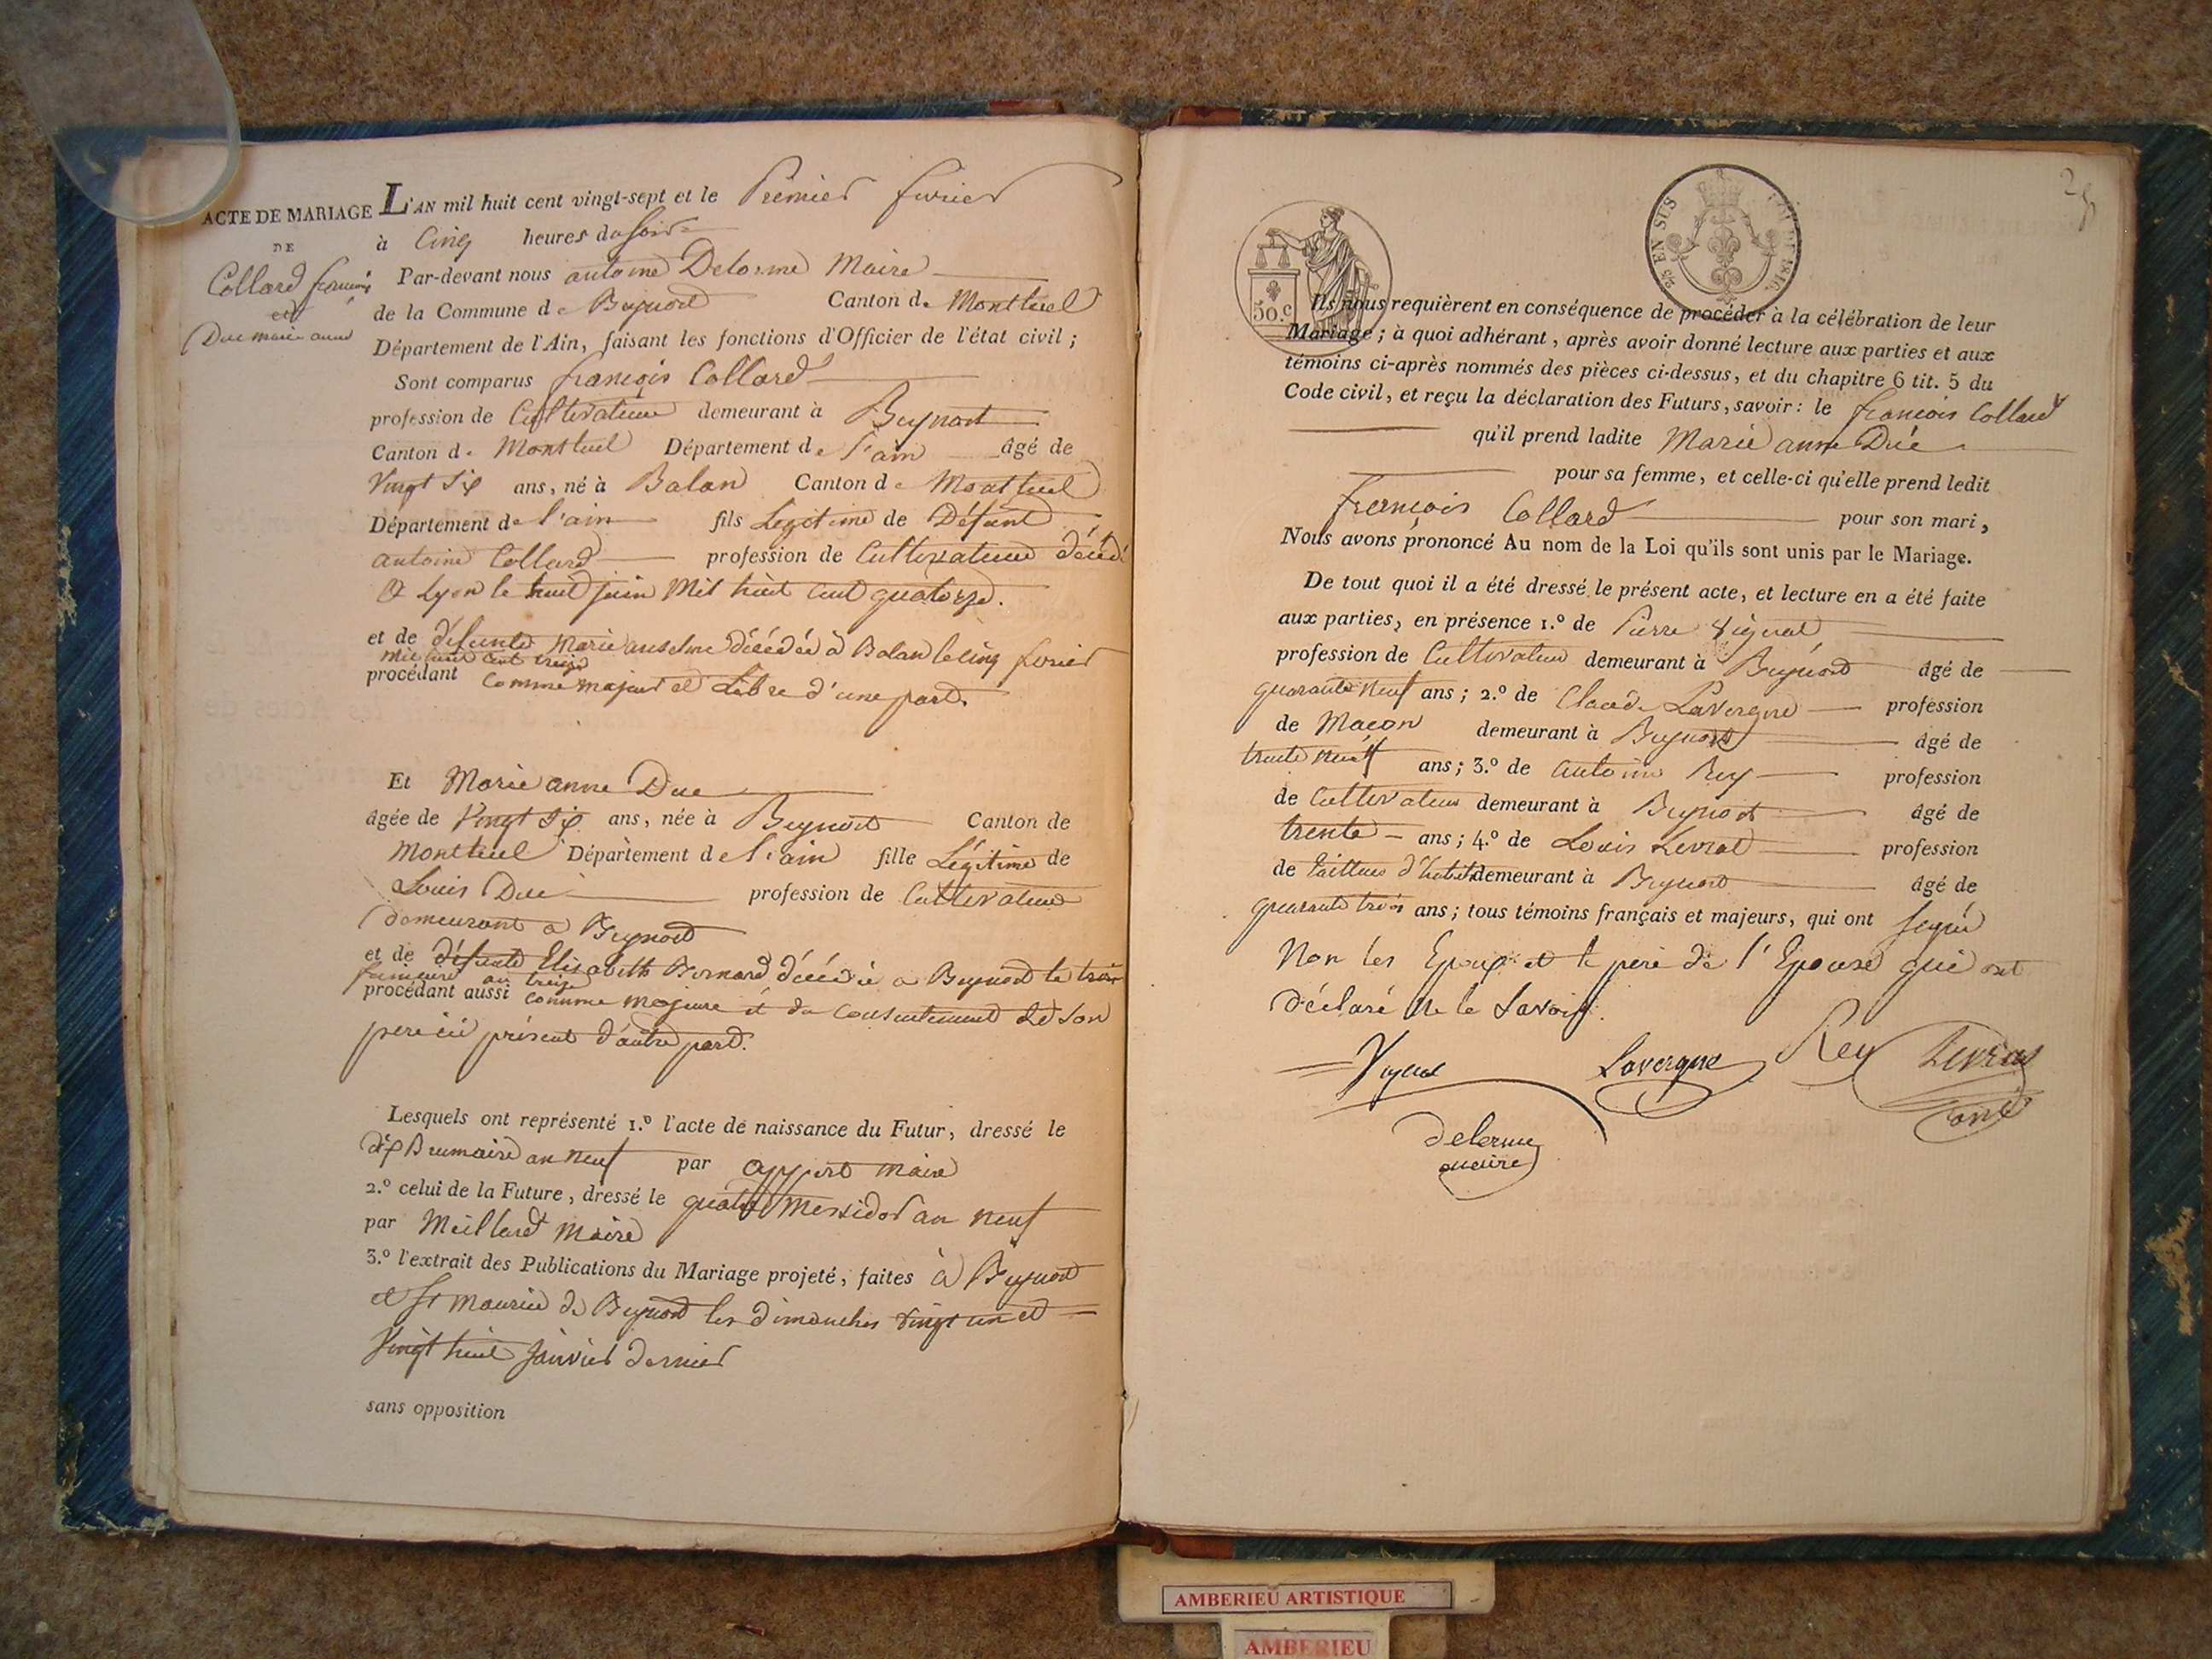 ACTE DE MARIAGE
DE
Collard françois
et
Due marie anne
L'AN mil huit cent vingt-sept et le Premier fevrier
à Cinq heures du soir
Par-devant nous antoine Delorme Maire
de la Commune de Beynost Canton de Montluel
Département de l'Ain, faisant les fonctions d'Officier de l'état civil ;
Sont comparus françois Collard
profession de Cultivateur demeurant à Beynost
Canton de Montluel Département de l'ain âgé de
Vingt Six ans, né à Balan Canton de Montluel
Département de l'ain fils Legitime de Défunt
antoine Collard profession de Cultivateur décédé
a Lyon le huit juin Mil huit Cent quatorze.
et de défunte Marie anselme décédée à Balan le cinq fevrier
mil huit cent treize
procédant comme majeur et Libre d'une part.
Et Marie anne Due
âgée de Vingt Six ans, née à Beynost Canton de
Montluel Département de l'ain fille Légitime de
Louis Due profession de Cultivateur
demeurant a Beynost
et de défunte Elisabeth Bernard décédée a Beynost le trois
frimaire an treize
procédant aussi comme majeure et du consentement de son
pere ici présent d'autre part.
Lesquels ont représenté 1.º l'acte de naissance du Futur, dressé le
dix Brumaire an neuf par maire
2.º celui de la Future, dressé le quatre Messidor an neuf
par Meillard Maire
3.º l'extrait des Publications du Mariage projeté, faites à Beynost
et St maurice de Beynost les dimanches vingt un et
Vingt huit janvier dernier
sans opposition
50.c
2/5 EN SUS
Ils nous requièrent en conséquence de procéder à la célébration de leur
Mariage ; à quoi adhérant, après avoir donné lecture aux parties et aux
témoins ci-après nommés des pièces ci-dessus, et du chapitre 6 tit. 5 du
Code civil, et reçu la déclaration des Futurs, savoir : le françois Collard
qu'il prend ladite Marie anne Due
pour sa femme, et celle-ci qu'elle prend ledit
françois Collard pour son mari,
Nous avons prononcé Au nom de la Loi qu'ils sont unis par le Mariage.
De tout quoi il a été dressé le présent acte, et lecture en a été faite
aux parties, en présence 1.º de Pierre Vignal
profession de Cultivateur demeurant à Beynost âgé de
quarante neuf ans ; 2.º de Claude Lavergne profession
de Maçon demeurant à Beynost âgé de
trente neuf ans ; 3.º de antoine Rey profession
de Cultivateur demeurant à Beynost âgé de
trente ans ; 4.º de Louis Levrat profession
de tailleur d'habits demeurant à Beynost âgé de
quarante trois ans ; tous témoins français et majeurs, qui ont signé
Non les Epoux et le pere de l'Epouse qui ont
déclaré Ne le Savoir.
Vignal Lavergne Rey Levrat
delorme
maire
AMBERIEU ARTISTIQUE
AMBERIEU